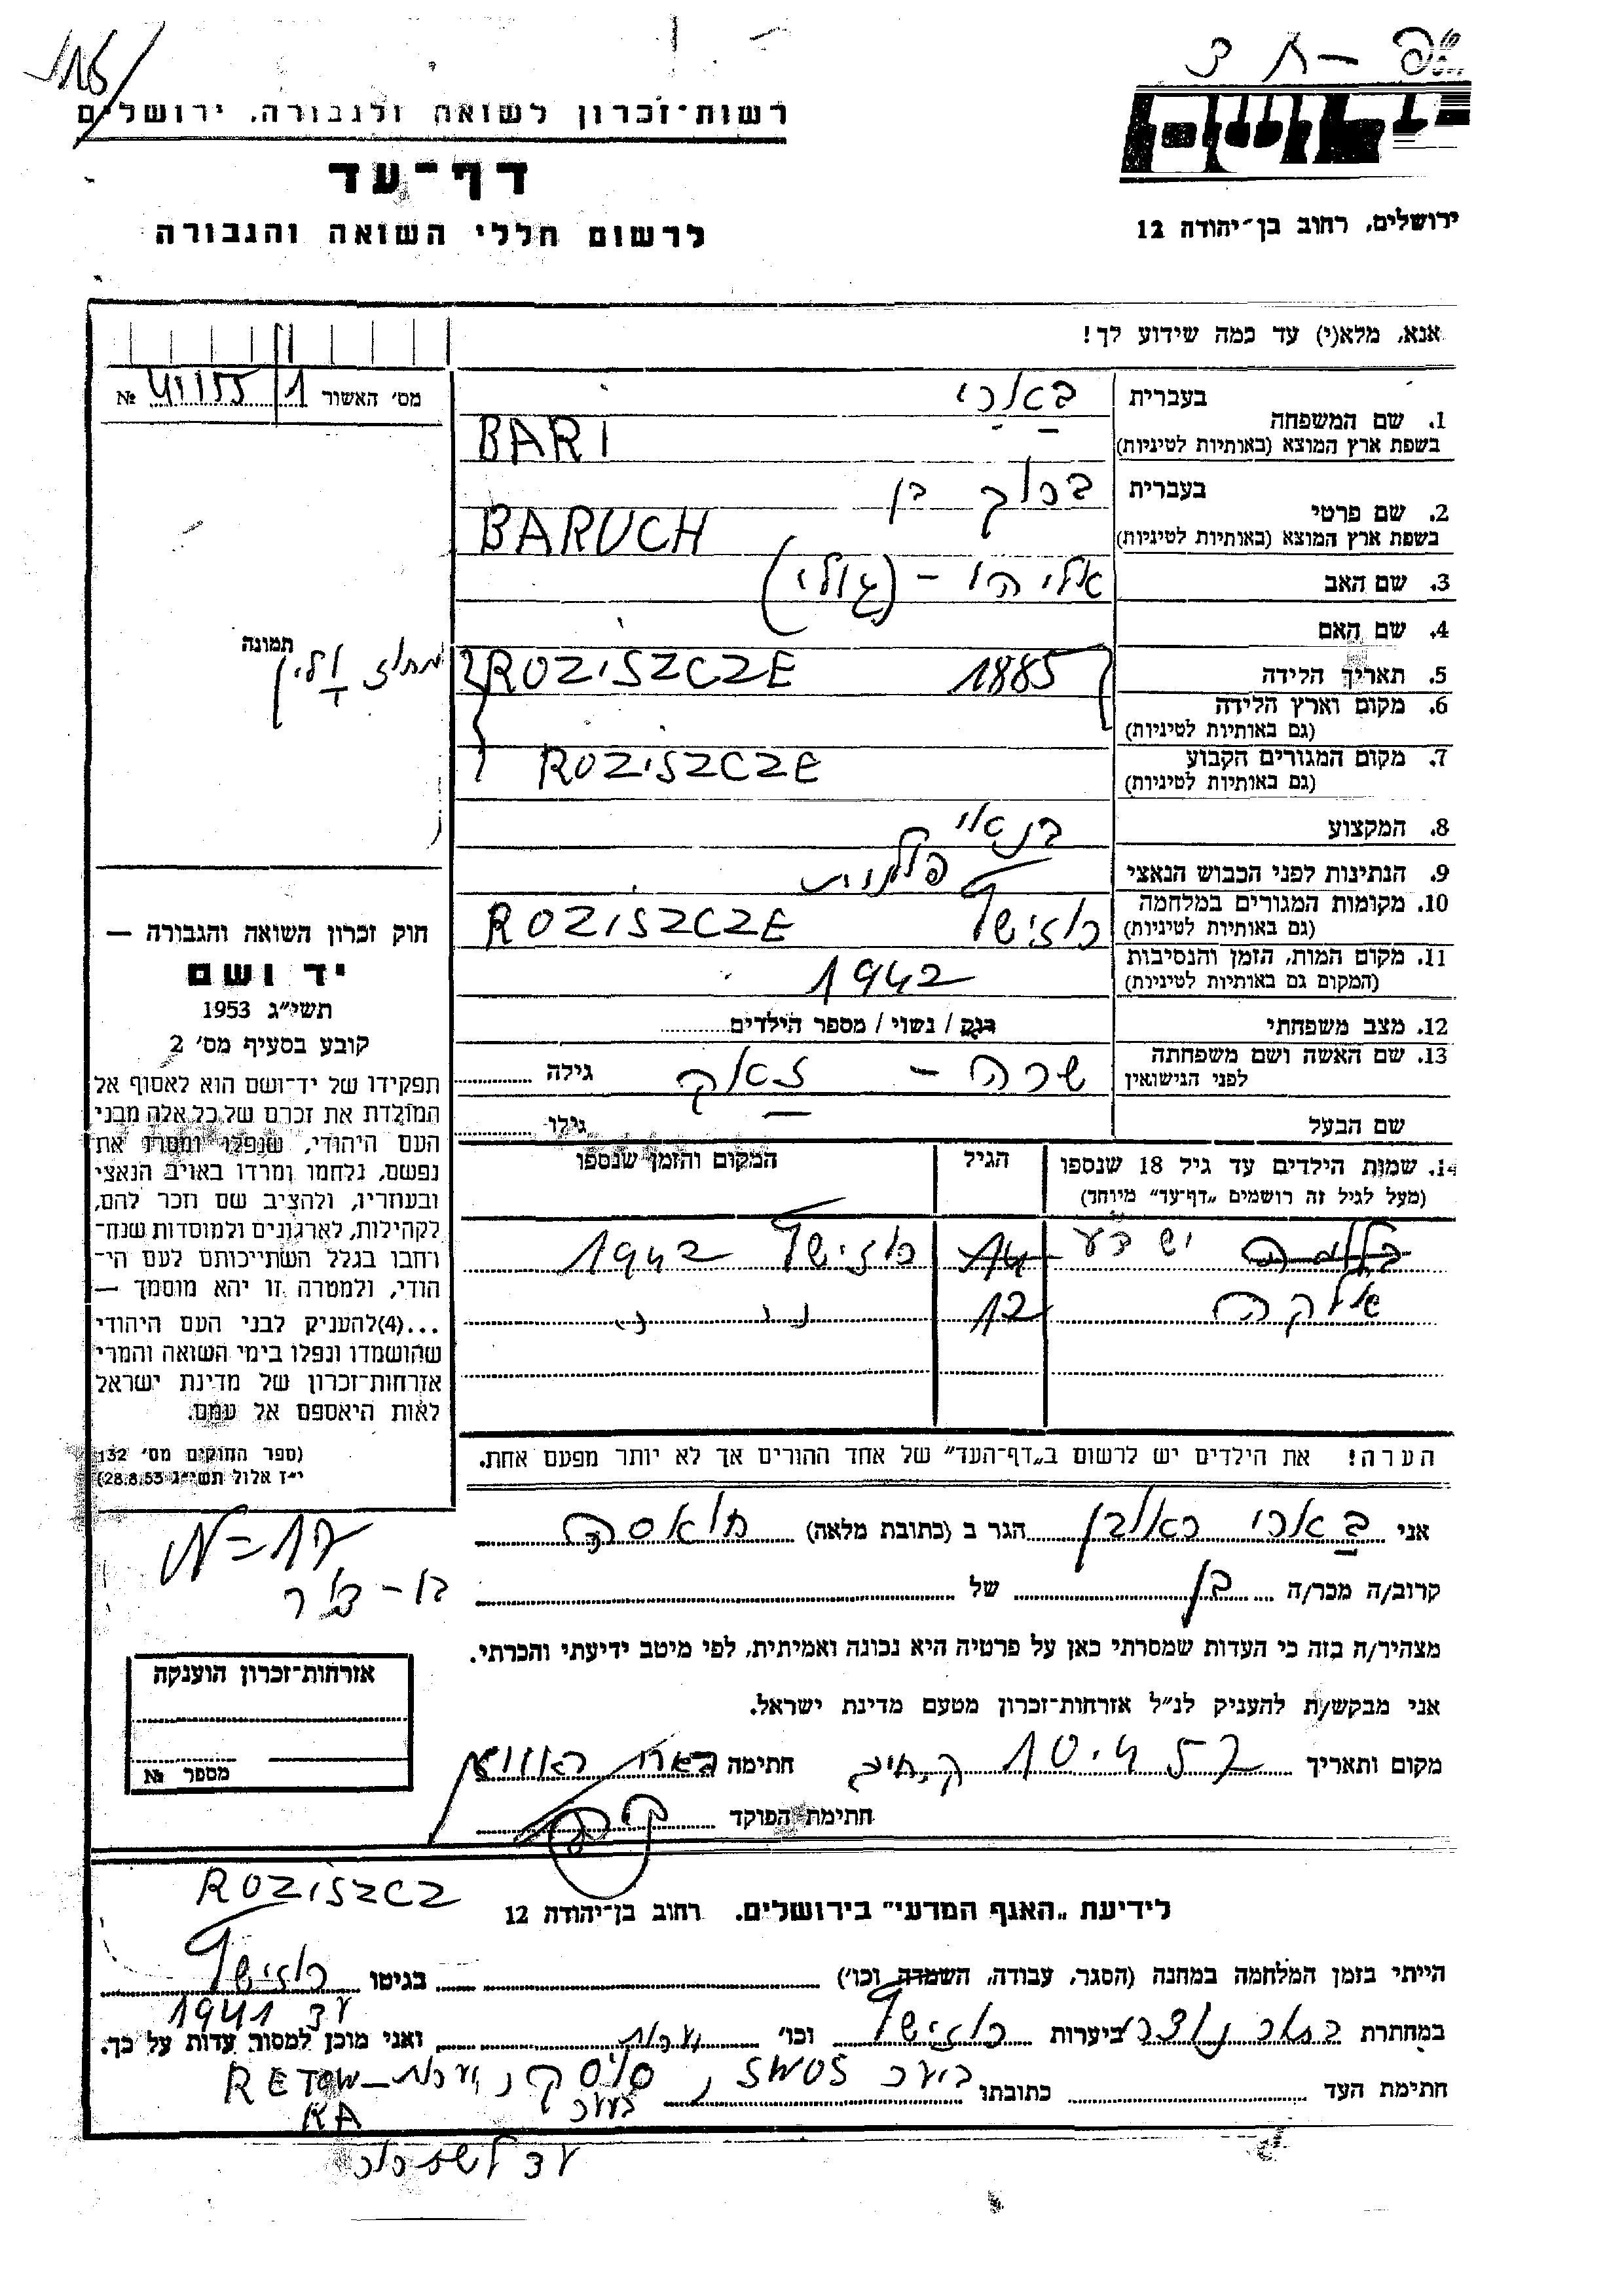 רשות־זכרון לשואה ולגבורה, ירושלים
דף־עד
לרשום חללי השואה והגבורה
ירושלים, רחוב בן־יהודה 12
אנא, מלא(י) עד כמה שידוע לך!
מס׳ האשור 1 41155 №
בעברית בארי
1. שם המשפחה
בשפת ארץ המוצא (באותיות לטיניות) BARI
בעברית ברוך בן
2. שם פרטי
בשפת ארץ המוצא (באותיות לטיניות) BARUCH
3. שם האב אליהו –
4. שם האם
תמונה
5. תאריך הלידה 1885
6. מקום וארץ הלידה ROZISZCZE
(גם באותיות לטיניות)
7. מקום המגורים הקבוע ROZISZCZE
(גם באותיות לטיניות)
8. המקצוע בנאי
9. הנתינות לפני הכבוש הנאצי פולנית
10. מקומות המגורים במלחמה רוזישץ ROZISZCZE
(גם באותיות לטיניות)
11. מקום המות, הזמן והנסיבות 1942
(המקום גם באותיות לטיניות)
12. מצב משפחתי רוק / נשוי / מספר הילדים
13. שם האשה ושם משפחתה שרה – זאק גילה
לפני הנישואין
שם הבעל גילו
14. שמות הילדים עד גיל 18 שנספו הגיל המקום והזמן שנספו
(מעל לגיל זה רושמים „דף־עד״ מיוחד)
14 רוזישץ 1942
12 " "
הערה! את הילדים יש לרשום ב„דף־העד״ של אחד ההורים אך לא יותר מפעם אחת.
חוק זכרון השואה והגבורה —
יד ושם
תשי״ג 1953
קובע בסעיף מס׳ 2
תפקידו של יד־ושם הוא לאסוף אל
המולדת את זכרם של כל אלה מבני
העם היהודי, שנפלו ומסרו את
נפשם, נלחמו ומרדו באויב הנאצי
ובעוזריו, ולהציב שם וזכר להם,
לקהילות, לארגונים ולמוסדות שנח־
רחבו בגלל השתייכותם לעם הי־
הודי, ולמטרה זו יהא מוסמך —
...(4)להעניק לבני העם היהודי
שהושמדו ונפלו בימי השואה והמרי
אזרחות־זכרון של מדינת ישראל
לאות היאספם אל עמם.
(ספר החוקים מס׳ 132
י״ז אלול תשי״ג 28.8.53)
אני בארי ראובן הגר ב (כתובת מלאה)
קרוב/ה מכר/ה בן של
מצהיר/ה בזה כי העדות שמסרתי כאן על פרטיה היא נכונה ואמיתית, לפי מיטב ידיעתי והכרתי.
אני מבקש/ת להעניק לנ״ל אזרחות־זכרון מטעם מדינת ישראל.
מקום ותאריך 10.4.57 חתימה
חתימת הפוקד
אזרחות־זכרון הוענקה
מספר №
ROZISZCZ
לידיעת „האגף המדעי״ בירושלים. רחוב בן־יהודה 12
הייתי בזמן המלחמה במחנה (הסגר, עבודה, השמדה וכו׳) בגיטו רוזישץ
עד 1941
במחתרת ביערות רוזישץ וכו׳ ואני מוכן למסור עדות על כך.
חתימת העד כתובתו
ביער SWOS RETOW
KA